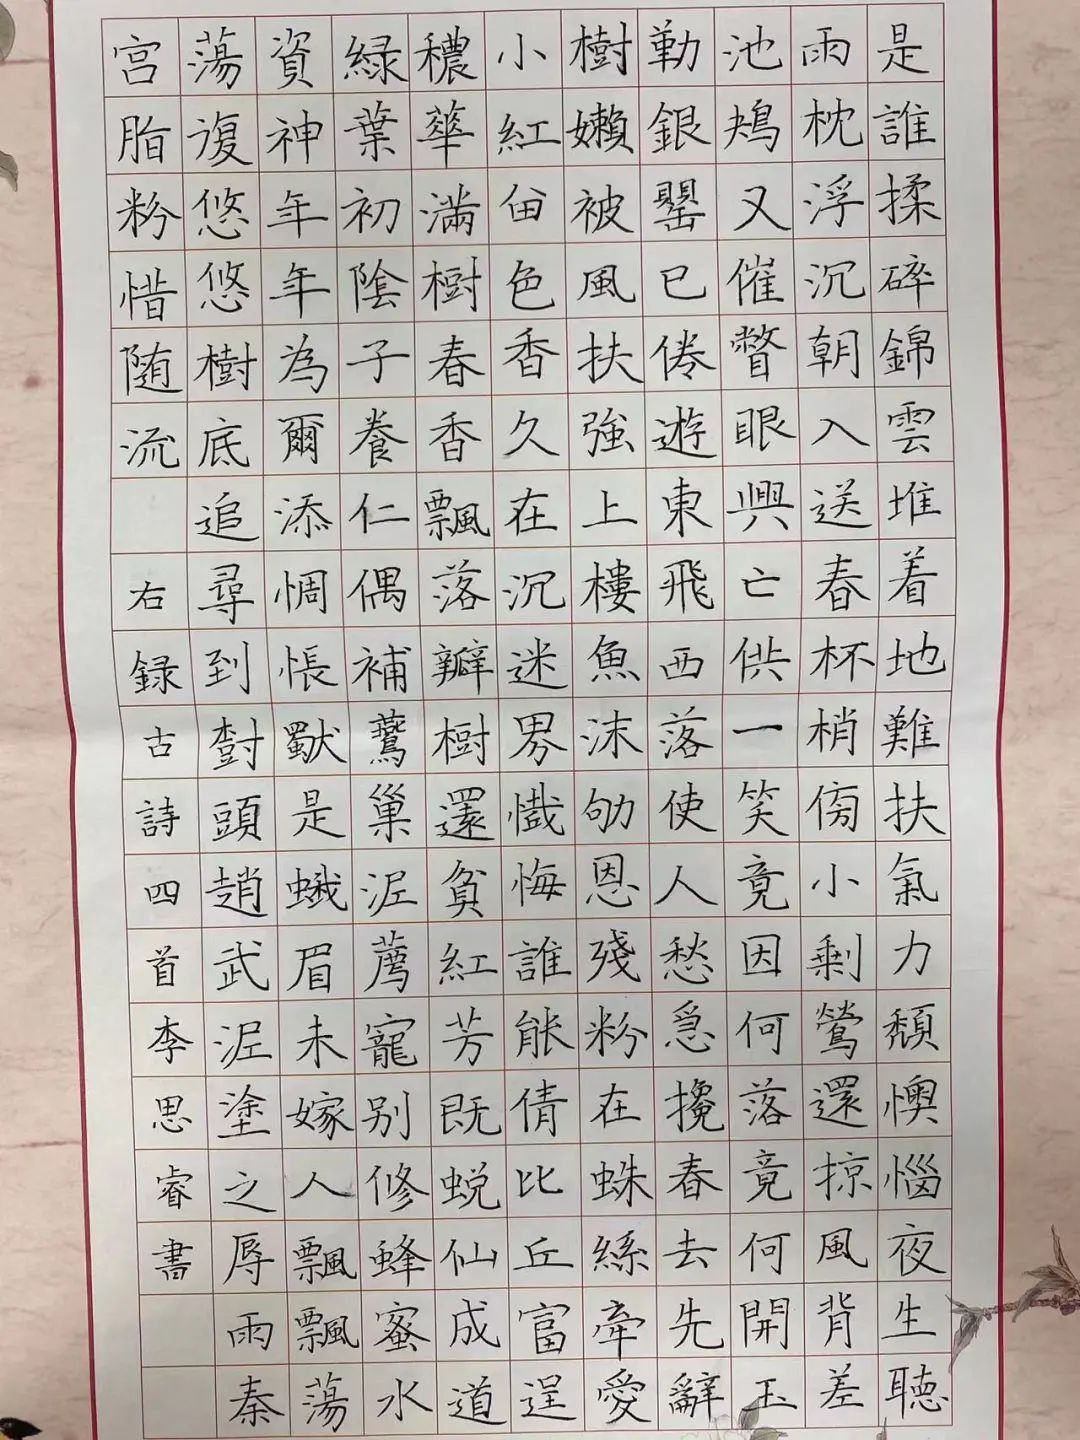 是誰揉碎錦雲堆着地難扶氣力頹懊惱夜生聽
雨枕浮沉朝入送春杯梢傍小剩鶯還掠風背差
池鴂又催瞥眼興亡供一笑竟因何落竟何開玉
勒銀罌已倦遊東飛西落使人愁急攙春去先辭
樹嬾被風扶強上樓魚沫劬恩殘粉在蛛絲牽愛
小紅留色香久在沉迷界懺悔誰能倩比丘富逞
穠華滿樹春香飄落瓣樹還貧紅芳既蜕仙成道
綠葉初陰子養仁偶補鷰巢泥薦寵別修蜂蜜水
資神年年為爾添惆悵獨是蛾眉未嫁人飄飄蕩
蕩復悠悠樹底追尋到樹頭趙武泥塗之辱雨秦
宮脂粉惜随流 右録古詩四首李思睿書